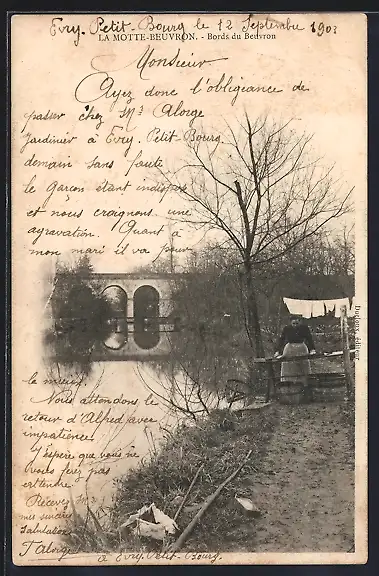 Evry. Petit-Bourg le 12 Septembre 1903
LA MOTTE-BEUVRON. - Bords du Beuvron
Monsieur
Ayez donc l'obligeance de
passer chez Mr Alorge
Jardinier à Evry. Petit-Bourg
demain sans faute
le garçon étant indispo
et nous craignons une
agravation. Quant à
mon mari il va pour
le mieux.
Nous attendons le
retour d'Alfred avec
impatience.
J'espère que vous ne
vous ferez pas
attendre
Recevez
mes sincères
Salutations
J Alorge
à Evry. Petit-Bourg.
éditeur